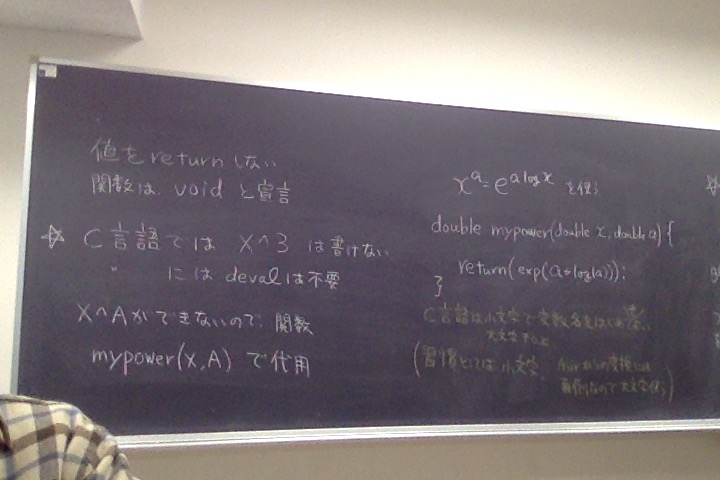 値をreturnしない
関数は void と宣言
☆ C言語では X^3 は書けない
〃 には devalは不要
X^Aができないので、関数
mypower(x,A) で代用
x^a = e^{a log x} を使う
double mypower(double x, double a) {
return(exp(a*log(a)));
}
C言語は小文字で変数名をはじめ
大文字
(習慣としては小文字、 からの変換には
面倒なので大文字使う)